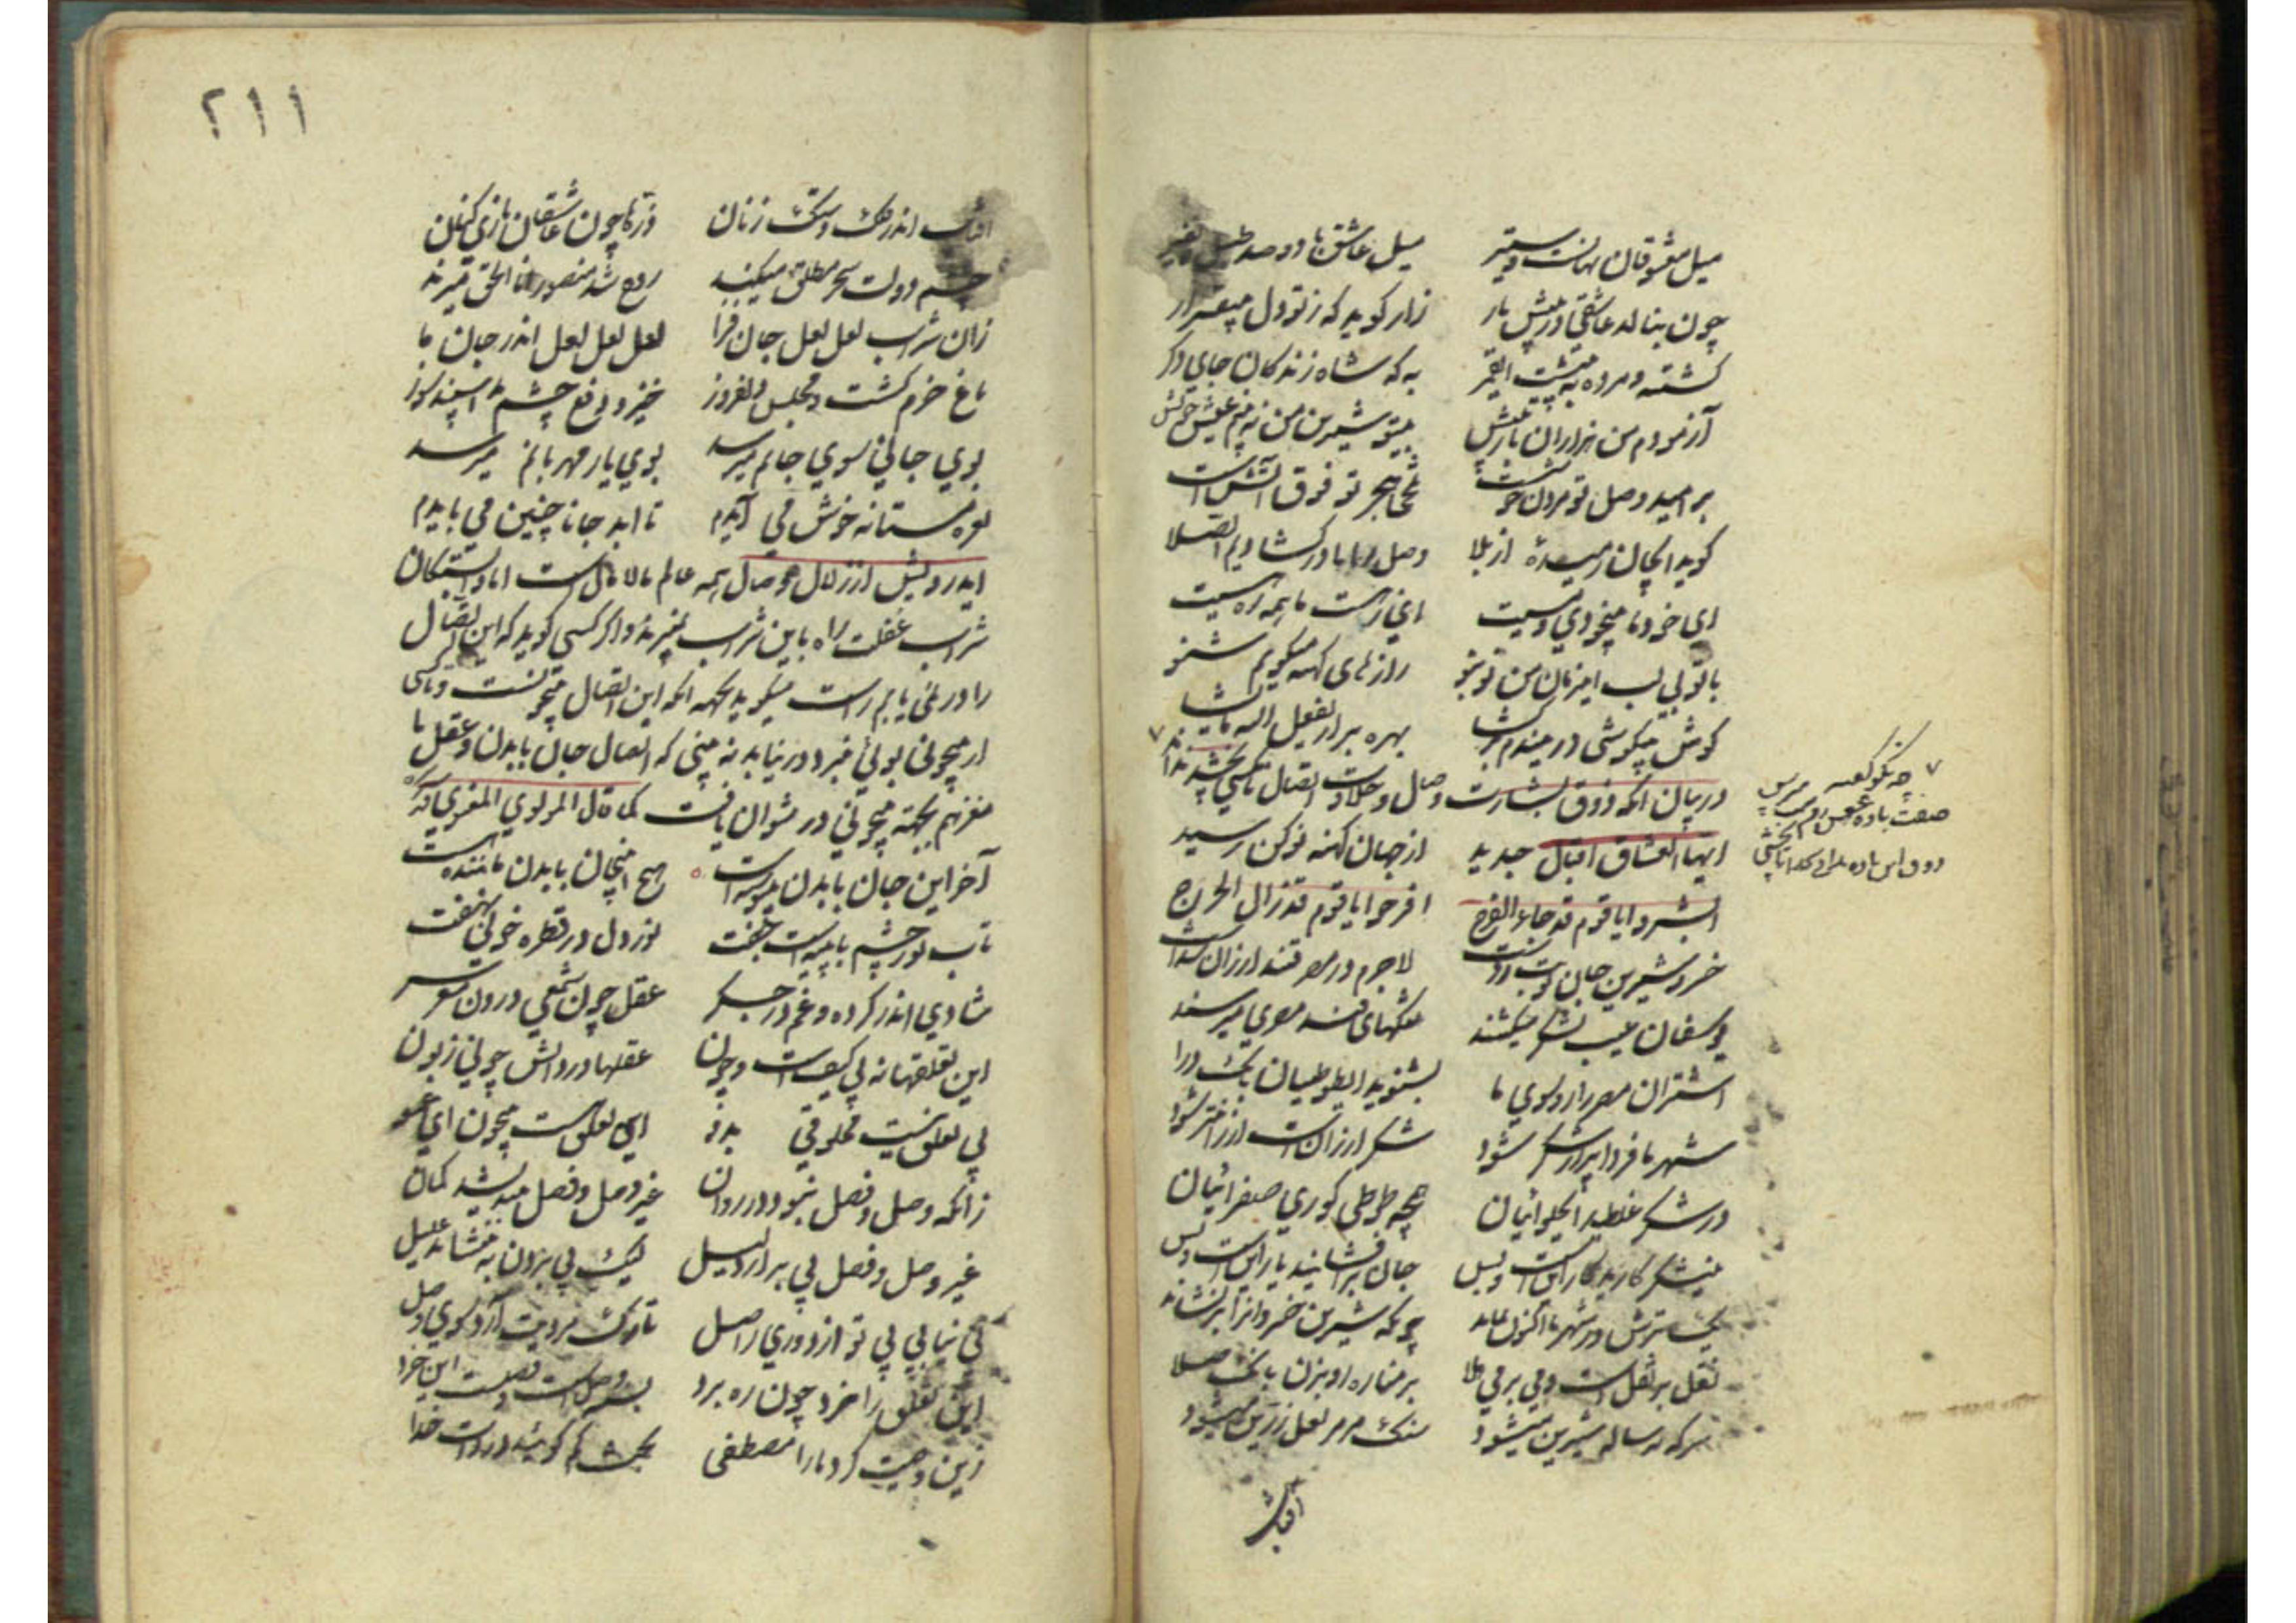 میل معشوقان نهانست و ستیر میل عاشق با دو صد طبل نفیر
چون بنالد عاشقی در پیش یار زار گوید که ز تو دل بیقرار
کشته و مرده به پیشت ای قمر به که شاه زندگان جای دگر
آزمودم من هزاران بار بیش بیتو شیرین من نه بینم عیش خویش
بر امید وصل تو مردن خوشست تلخی هجر تو فوق آتش است
گوید ای جان رمیده از بلا وصل ما را در گشادیم الصلا
ای خود ما بیخودی و مستیت ای ز هست ما همه هستیت
با تو بی لب این زمان من نو بنو رازهای کهنه میگویم شنو
گوش بیگوشی درین دم بر گشا بهره بر از یفعل الله ما یشا
در بیان آنکه ذوق بشارت وصال و حلاوت اتصال
ایها العشاق اقبال جدید از جهان کهنه نوکن رسید
ابشروا یا قوم قد جاء الفرج افرحوا یا قوم قد زال الحرج
خسرو شیرین جان نوبت زدست لاجرم در مصر قند ارزان شدست
یوسفان غیب لشکر میکشند تنگهای قند مصری میرسند
اشتران مصر را رو سوی ما بشنوید ای طوطیان بانگ درا
شهر ما فردا پر از شکر شود شکر ارزانست ارزانتر شود
در شکر غلطید ای حلوائیان همچو طوطی کوری صفرائیان
نیشکر کوبید کار اینست و بس جان بر افشانید یار اینست و بس
یک ترش در شهر ما اکنون نماند چونکه شیرین خسروانرا بر نشاند
نقل بر نقلست و می بر می هلا بر مناره رو بزن بانگ صلا
سرکه نه ساله شیرین میشود سنگ مرمر لعل زرین میشود
آفتاب
۲۱۱
آفتاب اندر فلک دستک زنان ذرها چون عاشقان بازی کنان
چشم دولت سحر مطلق میکند روح شد منصور انا الحق میزند
زان شراب لعل لعل جان فزا لعل لعل لعل لعل اندر جان ما
باغ خرم گشت و مجلس دلفروز خیز و دفع چشم بد اسپند سوز
بوی جانی سوی جانم میرسد بوی یار مهربانم میرسد
نعره مستانه خوش می آیدم تا ابد جانا چنین می بایدم
ایدرویش از زلال وصال همه عالم مالامال است اما
شراب غفلت راه باین شراب نمیبرند و اگر کسی گوید که این اتصال
را در نمی یابم راست میگوید بجهت آنکه این اتصال بیچونست و تا کسی
از بیچونی بوئی نبرد در نیابد نه بینی که اتصال جان با بدن و عقل با
مغز هم بجهت بیچونی در نتوان یافت کما قال المولوی المعنوی
آخر این جان با بدن پیوسته است هیچ این جان با بدن ماننده است
تاب نور چشم با پیه است جفت نور دل در قطره خونی نهفت
شادی اندر گرده و غم در جگر عقل چون شمعی درون مغز سر
این تعلقها نه بی کیف است و چون عقلها در دانش چونی زبون
بی تعلق نیست مخلوقی بدو این تعلق هست بیچون ای عمو
زانکه وصل و فصل نبود در روان غیر وصل و فصل نندیشد گمان
غیر وصل و فصل پی بر از دلیل لیک پی بردن به ننشاند غلیل
این تعلق را خرد چون ره برد بسته وصلست و فصلست این خرد
زین وصیت کرد ما را مصطفی بحث کم جوئید در ذات خدا